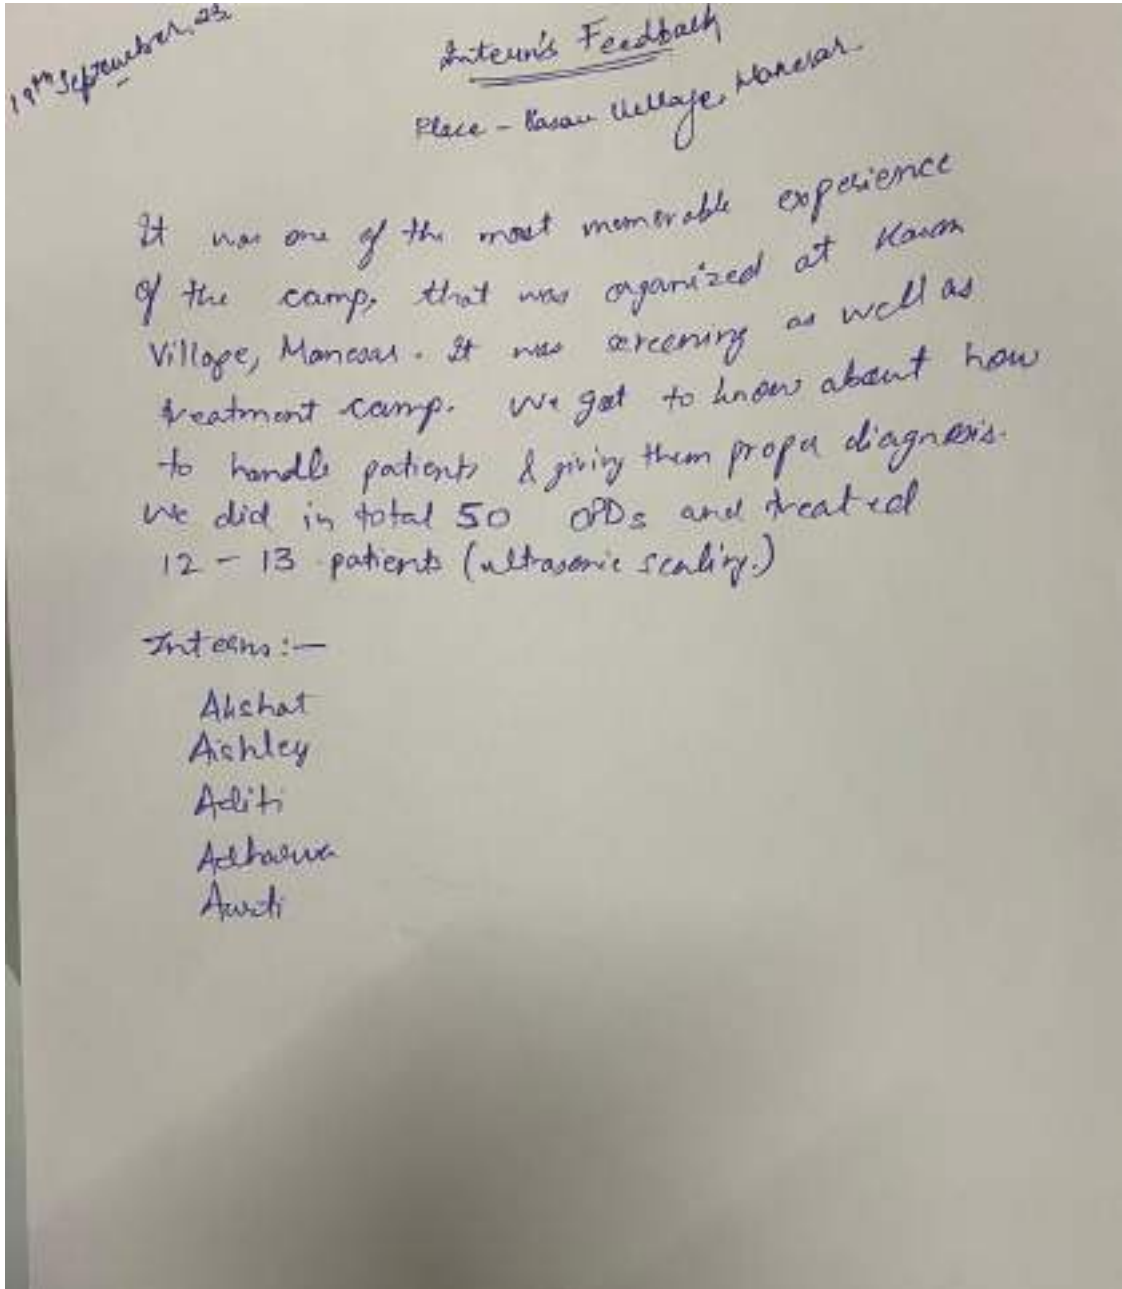 19th September, 23
Intern's Feedback
Place - Kasan Village, Manesar.
It was one of the most memorable experience
of the camp, that was organized at Kasan
Village, Manesar. It was screening as well as
treatment camp. We got to know about how
to handle patients & giving them proper diagnosis.
We did in total 50 OPDs and treated
12 - 13 patients (ultrasonic scaling.)
Interns :-
Akshat
Aishley
Aditi
Aarti